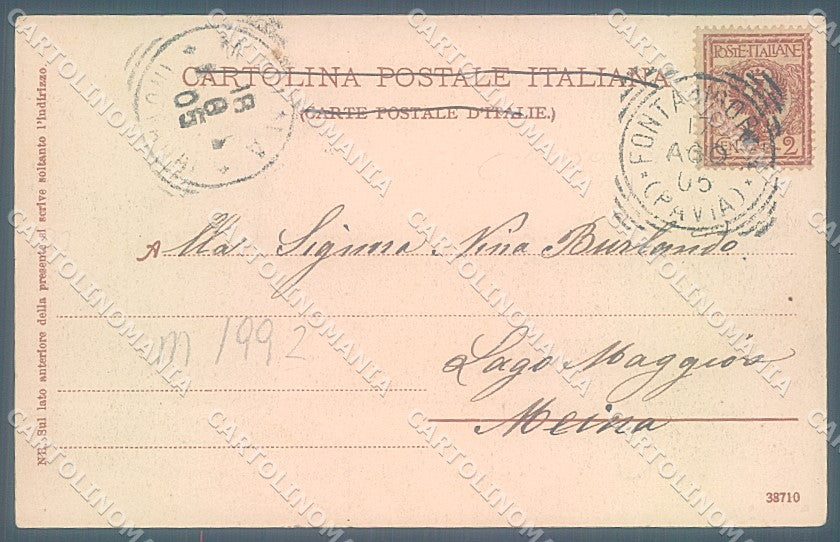 CARTOLINA POSTALE ITALIANA
(CARTE POSTALE D'ITALIE.)
POSTE·ITALIANE
2
(PAVIA)
AGO
05
18
8
05
Alla Signora Nina Burlando
Lago Maggiore
Meina
m 1992
NB. Sul lato anteriore della presente si scrive soltanto l'indirizzo
38710
CARTOLINOMANIA